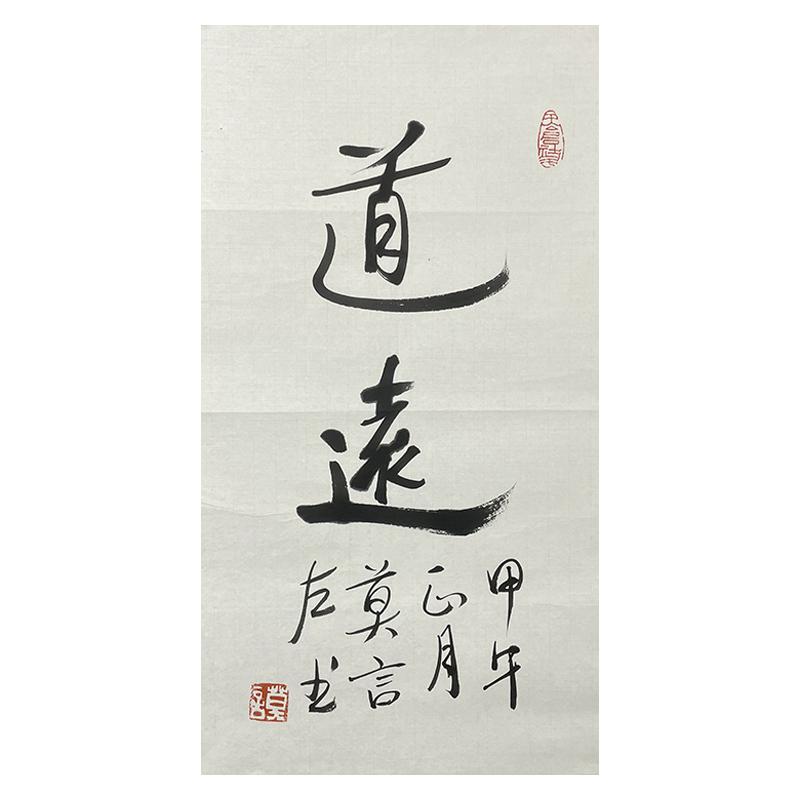 道遠
甲午
正月
莫言
左书
莫言